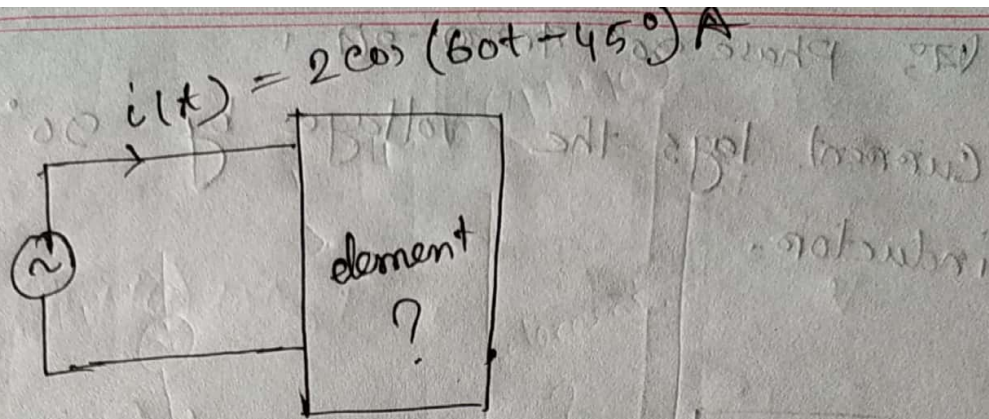 i(t) = 2 cos (60t - 45°) A
~
element
?